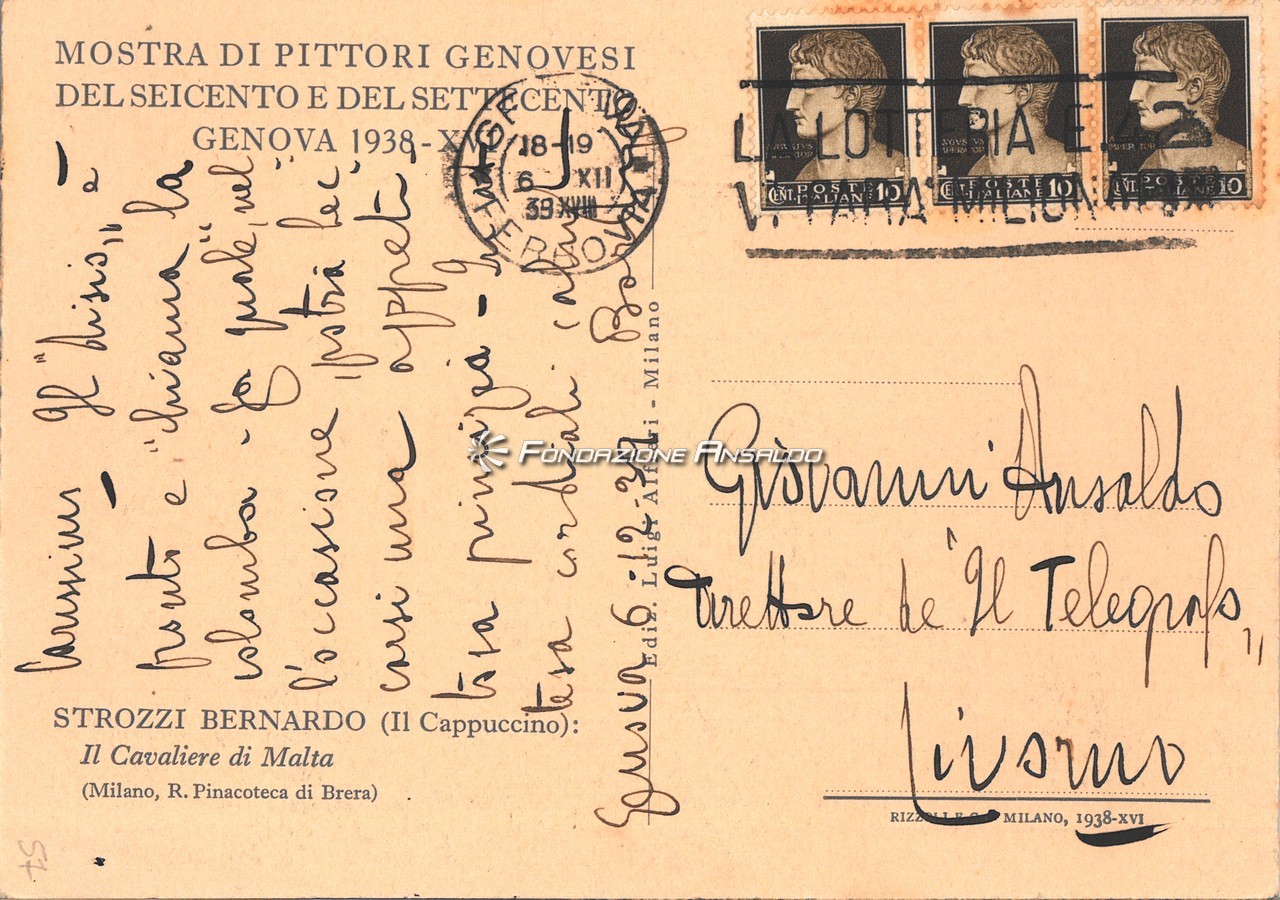 MOSTRA DI PITTORI GENOVESI
DEL SEICENTO E DEL SETTECENTO
GENOVA 1938-XVI
18-19
6 XII
39 XVIII
LA LOTTERIA E. 42
V. FARA' MILIONARI
POSTE ITALIANE CENT. 10
POSTE ITALIANE CENT. 10
POSTE ITALIANE CENT. 10
Carissimo - Il "disis" è
pronto e "chiama la
colomba - la quale" nel
l'occasione potrà bec
carsi una appeti
tosa
cordiali
Genova 6-12-39
Ediz. Luigi Alfieri - Milano
FONDAZIONE ANSALDO
Giovanni Ansaldo
Direttore de "Il Telegrafo"
Livorno
STROZZI BERNARDO (Il Cappuccino):
Il Cavaliere di Malta
(Milano, R. Pinacoteca di Brera)
RIZZOLI E C. MILANO, 1938-XVI